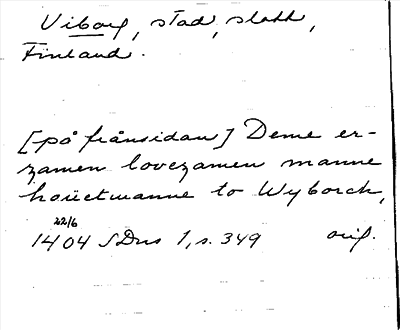 Viborg, stad, slott,
Finland.
[på frånsidan] Deme er-
zamen lovezamen manne
hoüetmanne to Wyborch,
22/6
1404 SDns 1, s. 349 orig.